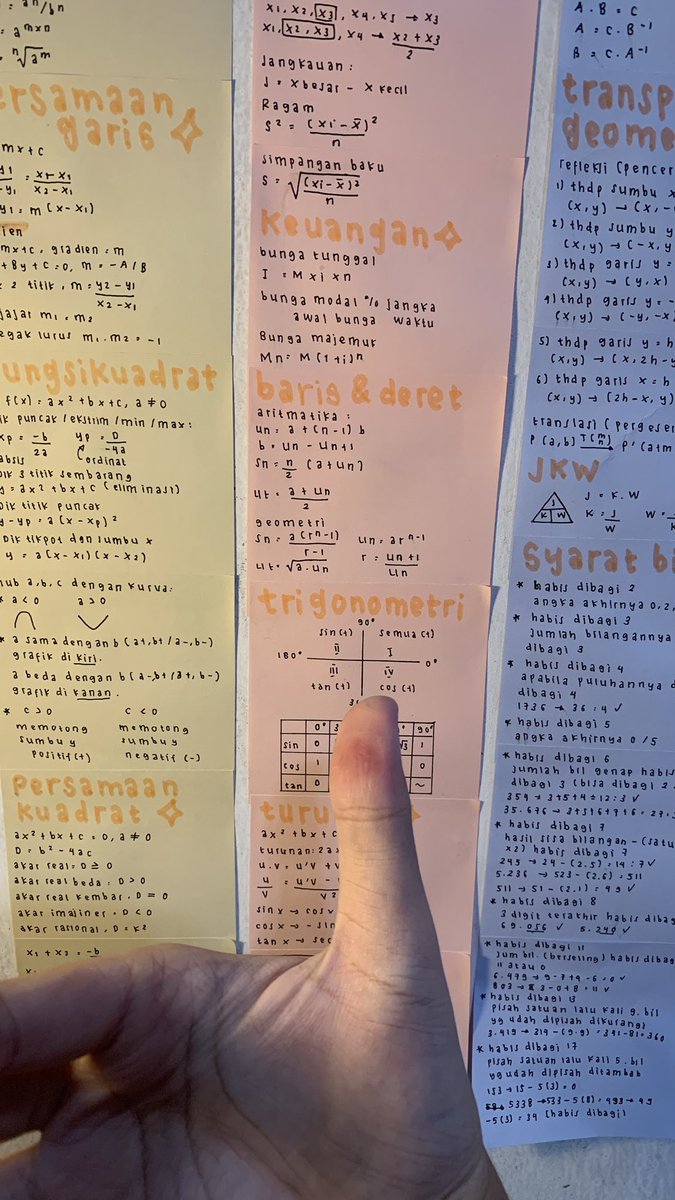 = aⁿ/bⁿ
= aᵐˣⁿ
ⁿ√aᵐ
ersamaan
garis
mx+c
y1 = x - x1
-y1 x2 - x1
y1 = m (x - x1)
ien
mx+c, gradien = m
+By+c=0, m = -A/B
2 titik, m = y2 - y1
x2 - x1
jajar m1 = m2
egak lurus m1 . m2 = -1
ungsi kuadrat
f(x) = ax² + bx + c, a ≠ 0
ik puncak / ekstrim / min / max :
xp = -b/2a yp = D/-4a
absis ordinat
Dik 3 titik sembarang
y = ax² + bx + c (eliminasi)
Dik titik puncak
y - yp = a (x - xp)²
Dik tikpot dgn sumbu x
y = a(x - x1) (x - x2)
hub a, b, c dengan kurva :
* a < 0 a > 0
* a sama dengan b (a+, b+ / a-, b-)
grafik di kiri.
a beda dengan b (a-, b+ / a+, b-)
grafik di kanan.
* c > 0 c < 0
memotong memotong
sumbu y sumbu y
positif (+) negatif (-)
persamaan
kuadrat
ax² + bx + c = 0, a ≠ 0
D = b² - 4ac
akar real = D ≥ 0
akar real beda = D > 0
akar real kembar = D = 0
akar imajiner = D < 0
akar rasional = D = k²
x1 + x2 = -b
x1, x2, x3, x4, x5 → x3
x1, x2, x3, x4 → x2 + x3
2
Jangkauan :
J = x besar - x kecil
Ragam
S² = (xi - x̄)²
n
simpangan baku
S = √(xi - x̄)²
n
keuangan
bunga tunggal
I = M x i x n
bunga modal % jangka
awal bunga waktu
Bunga majemuk
Mn = M (1+i)ⁿ
baris & deret
aritmatika :
un = a + (n-1) b
b = un - un-1
sn = n/2 (a + un)
ut = a + un
2
geometri
sn = a(rⁿ-1) un = arⁿ⁻¹
r-1 r = un+1
ut = √a.un un
trigonometri
90°
sin (+) semua (+)
II I
180° 0°
III IV
tan (+) cos (+)
0° 90°
sin 0 1
cos 1 0
tan 0 ~
turu
ax² + bx + c
turunan = 2a
u.v = u'v + v
u = u'v -
v v²
sin x → cos x
cos x → - sin
tan x → sec
A . B = C
A = C . B⁻¹
B = C . A⁻¹
transp
geome
refleksi (pencer
1) thdp sumbu x
(x, y) → (x, -
2) thdp sumbu y
(x, y) → (-x, y
3) thdp garis y =
(x, y) → (y, x)
4) thdp garis y = -
(x, y) → (-y, -x
5) thdp garis y = h
(x, y) → (x, 2h - y
6) thdp garis x = h
(x, y) → (2h - x, y)
translasi (pergeser
P (a, b) T(m n) P' (a+m
JKW
J = K . W
J K W K = J/W W =
syarat bi
* habis dibagi 2
angka akhirnya 0, 2,
* habis dibagi 3
jumlah bilangannya
dibagi 3
* habis dibagi 4
apabila puluhannya d
dibagi 4
1736 → 36 : 4 ✓
* habis dibagi 5
angka akhirnya 0 / 5
* habis dibagi 6
jumlah bil genap habis
dibagi 3 (bisa dibagi 2
354 → 3+5+4 = 12 : 3 ✓
35.676 → 3+5+6+7+6 = 27 :
* habis dibagi 7
hasil sisa bilangan - (satu
x2) habis dibagi 7
245 → 24 - (2.5) = 14 : 7 ✓
5.236 → 523 - (2.6) = 511
511 → 51 - (2.1) = 49 ✓
* habis dibagi 8
3 digit terakhir habis dibag
69.056 ✓ 5.240 ✓
* habis dibagi 11
jum bil. (berseling) habis dibag
11 atau 0
6.479 → 9-7+4-6 = 0 ✓
803 → 3-0+8 = 11 ✓
* habis dibagi 13
pisah satuan lalu kali 9. bil
yg udah dipisah dikurangi
3.419 → 341 - (9.9) = 341 - 81 = 260
* habis dibagi 17
pisah satuan lalu kali 5. bil
yg udah dipisah ditambah
153 → 15 - 5(3) = 0
5338 → 533 - 5(8) = 493 → 49
-5(3) = 34 (habis dibagi)